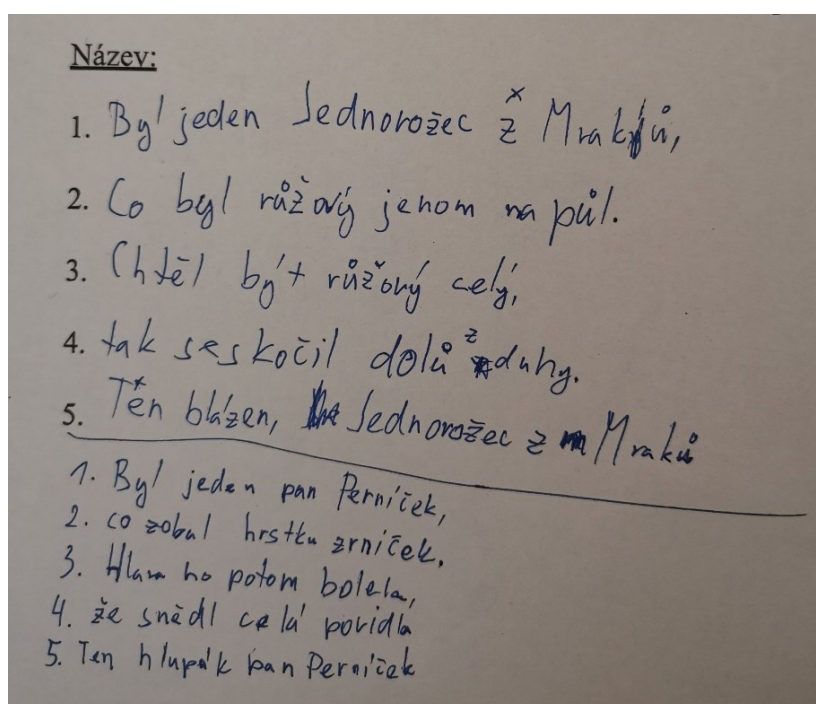 Název:
1. Byl jeden Jednorožec z Mraků,
2. Co byl růžový jenom na půl.
3. Chtěl být růžový celý,
4. tak seskočil dolů z duhy.
5. Ten blázen, Jednorožec z Mraků
1. Byl jeden pan Perníček,
2. co zobal hrstku zrníček.
3. Hlava ho potom bolela,
4. že snědl celá povidla
5. Ten hlupák pan Perníček